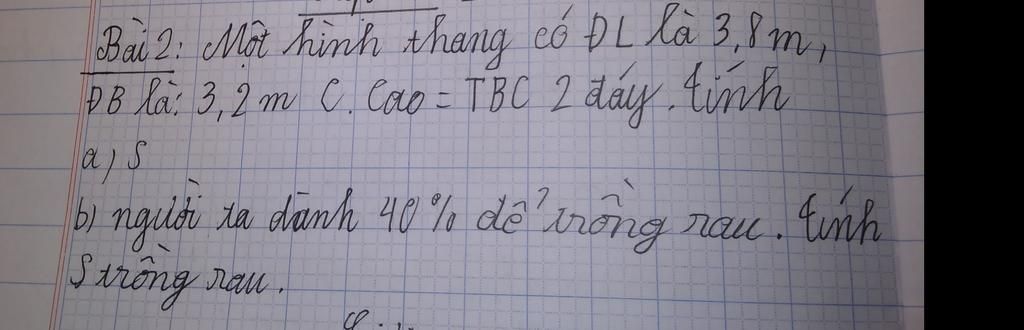 Bài 2: Một hình thang có ĐL là 3,8m,
ĐB là: 3,2m C. Cao = TBC 2 đáy. tính
a) S
b) người ta dành 40% để trồng rau. tính
S trồng rau.